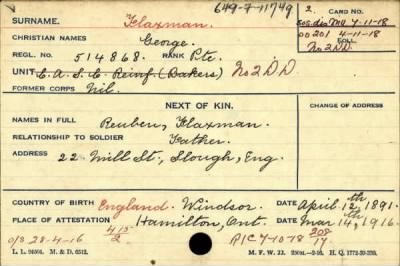 649-7-11749
2. CARD NO.
SURNAME. Flaxman.
sos.dis 7-11-18
CHRISTIAN NAMES George.
00201 4-11-18
FOLL.
REGL. NO. 514868. RANK Pte.
No 2 DD.
UNIT C.A.S.C. Reinf (Bakers) No 2 D.D
FORMER CORPS Nil.
NEXT OF KIN.
CHANGE OF ADDRESS
NAMES IN FULL Reuben, Flaxman.
RELATIONSHIP TO SOLDIER Father.
ADDRESS 22 Mill St., Slough, Eng.
COUNTRY OF BIRTH England. Windsor. DATE April. 12th, 1891.
PLACE OF ATTESTATION Hamilton, Ont. DATE Mar 14th, 1916.
O/S 28-4-16 415/2 R/C 7-10-18 208/17
L. L. 94504. M. & D. 6512. M. F. W. 22. 250M.-2-16. H. Q. 1772-39-339.